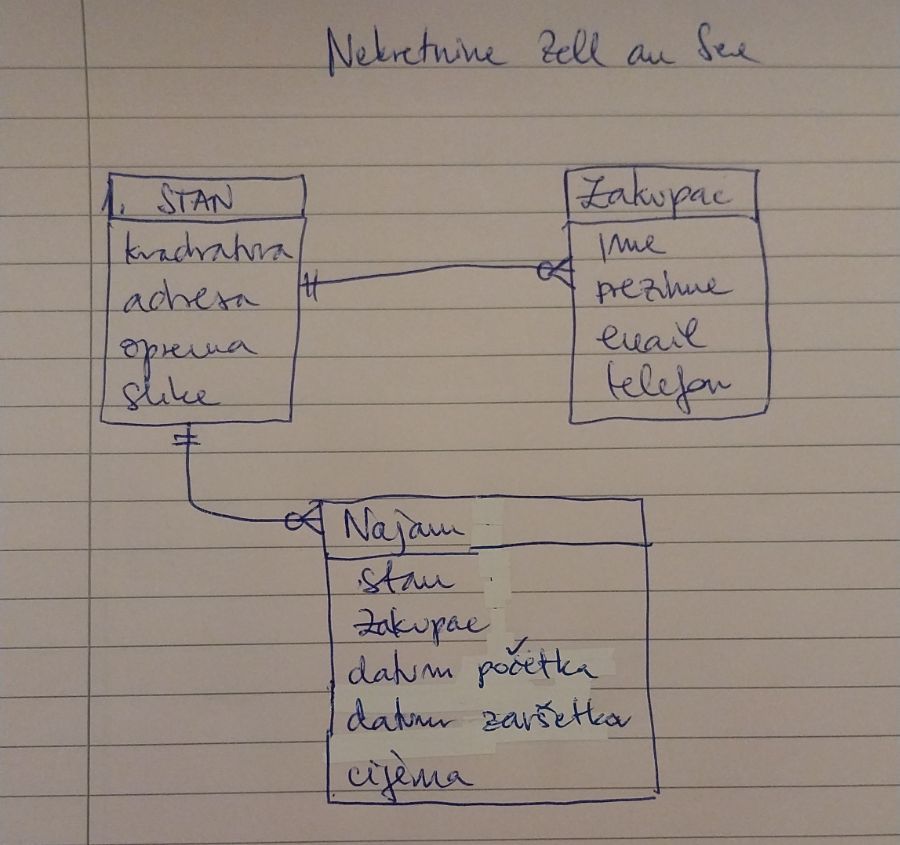 Nekretnine Zell am See
1. STAN
kvadratura
adresa
oprema
slike
Zakupac
ime
prezime
email
telefon
Najam
stan
zakupac
datum početka
datum završetka
cijena